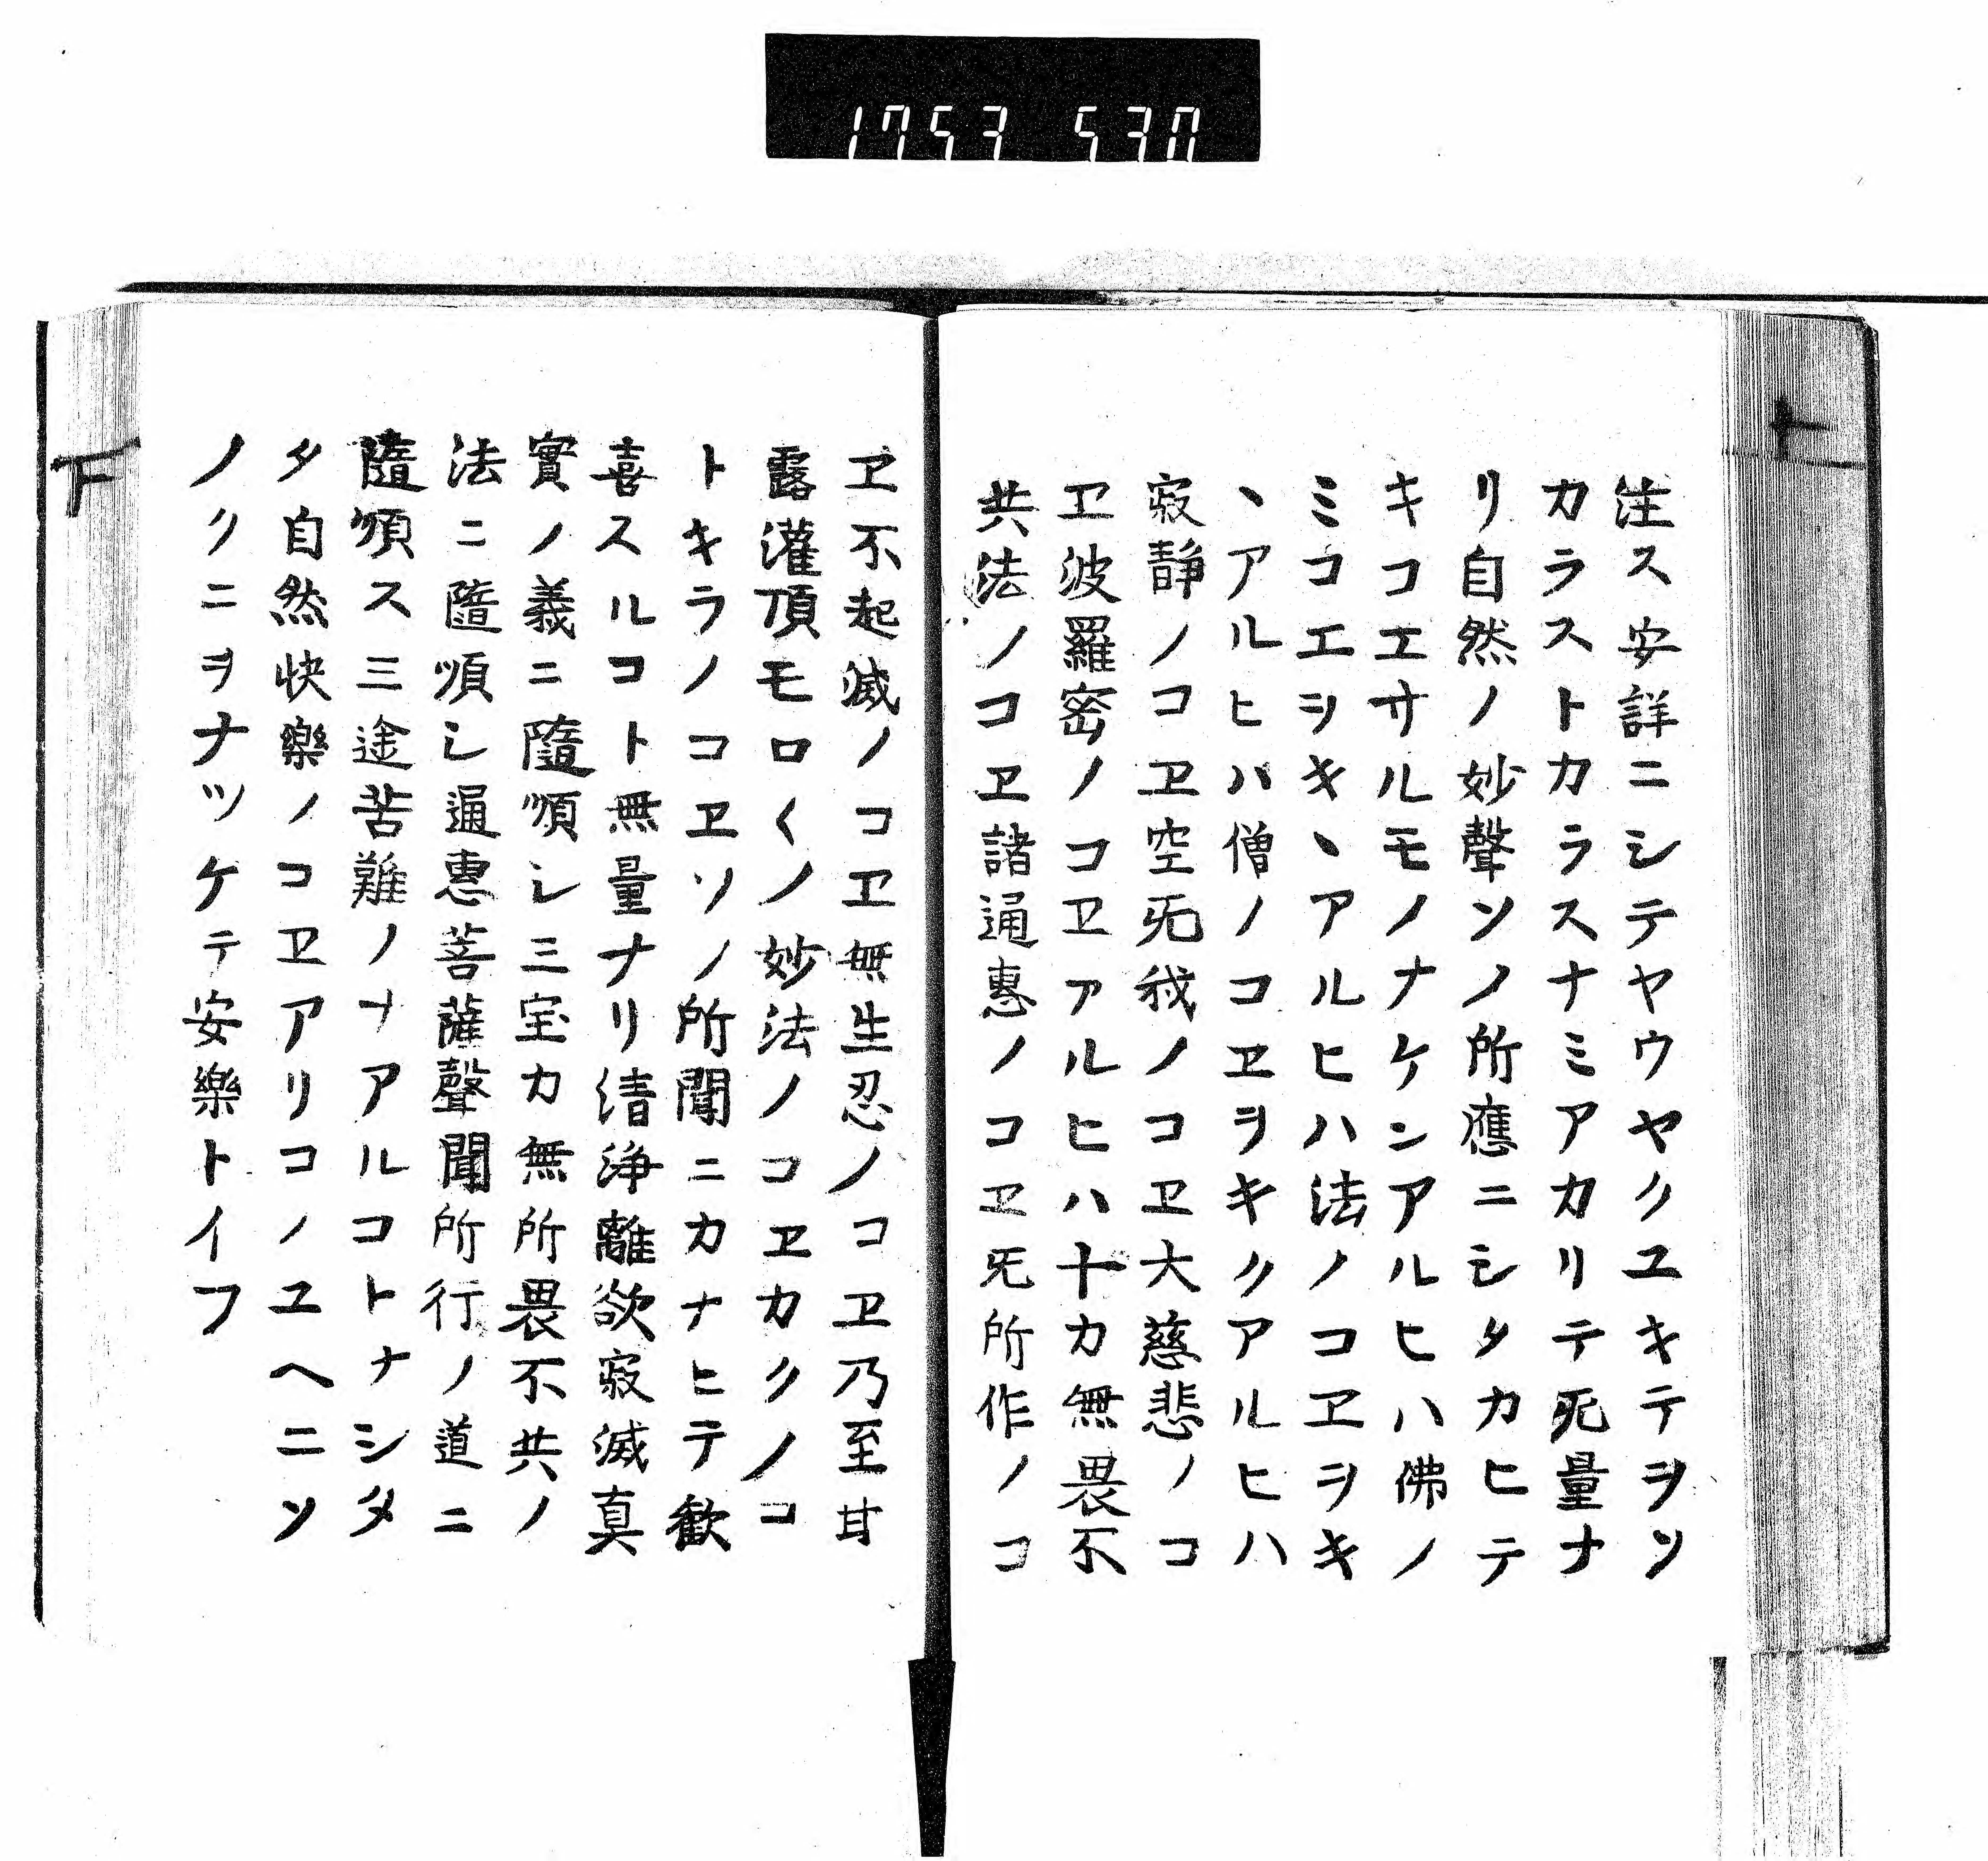 1753 530
注ス安詳ニシテヤウヤクユキテヲソ
カラストカラスナミアカリテ无量ナ
リ自然ノ妙聲ソノ所應ニシタカヒテ
キコエサルモノナケンアルヒハ佛ノ
ミコエヲキヽアルヒハ法ノコヱヲキ
ヽアルヒハ僧ノコヱヲキクアルヒハ
寂靜ノコヱ空无我ノコヱ大慈悲ノコ
ヱ波羅密ノコヱアルヒハ十力無畏不
共法ノコヱ諸通惠ノコヱ无所作ノコ
ヱ不起滅ノコヱ無生忍ノコヱ乃至甘
露灌頂モロ〱ノ妙法ノコヱカクノコ
トキラノコヱソノ所聞ニカナヒテ歡
喜スルコト無量ナリ清浄離欲寂滅真
實ノ義ニ隨順シ三宝力無所畏不共ノ
法ニ隨順シ通惠菩薩聲聞所行ノ道ニ
隨順ス三途苦難ノナアルコトナシタ
タ自然快樂ノコヱアリコノユヘニソ
ノクニヲナツケテ安樂トイフ
上
下